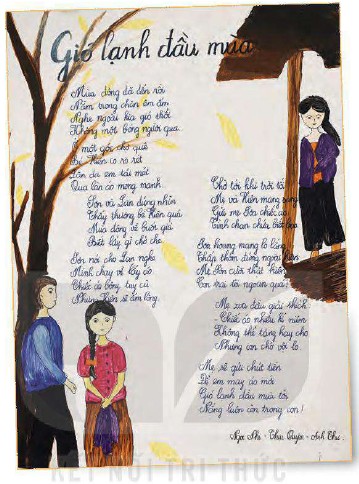 Gió lạnh đầu mùa
Mùa đông đã đến rồi
Nằm trong chăn ấm êm
Nghe ngoài kia gió thổi
Không một bóng người qua.
Ở một góc chợ quê
Bé Hiên co ro rét
Làn da em tái mét
Qua làn áo mong manh.
Sơn và Lan đứng nhìn
Thấy thương bé Hiên quá
Mùa đông về buốt giá
Biết lấy gì chở che
Sơn nói cho Lan nghe
Mình chạy về lấy áo
Chiếc áo bông tuy cũ
Nhưng Hiên sẽ ấm lòng.
Chờ tới khi trời tối
Mẹ và Hiên mang sang
Gửi mẹ Sơn chiếc áo
Sơn hoang mang lo lắng
Thấp thỏm đứng ngoài hiên
Mẹ Sơn của thật hiền
Con trai tôi ngoan quá!
Mẹ xoa đầu giải thích
Chiếc áo nhiều kỉ niệm
Không thể tặng hay cho
Nhưng con chớ vội lo.
Mẹ sẽ gửi chút tiền
Để em may áo mới
Gió lạnh đầu mùa tới
Nắng luôn còn trong con!
Ngọc Nhi - Thu Quyên - Anh Thư
KẾT NỐI TRI THỨC